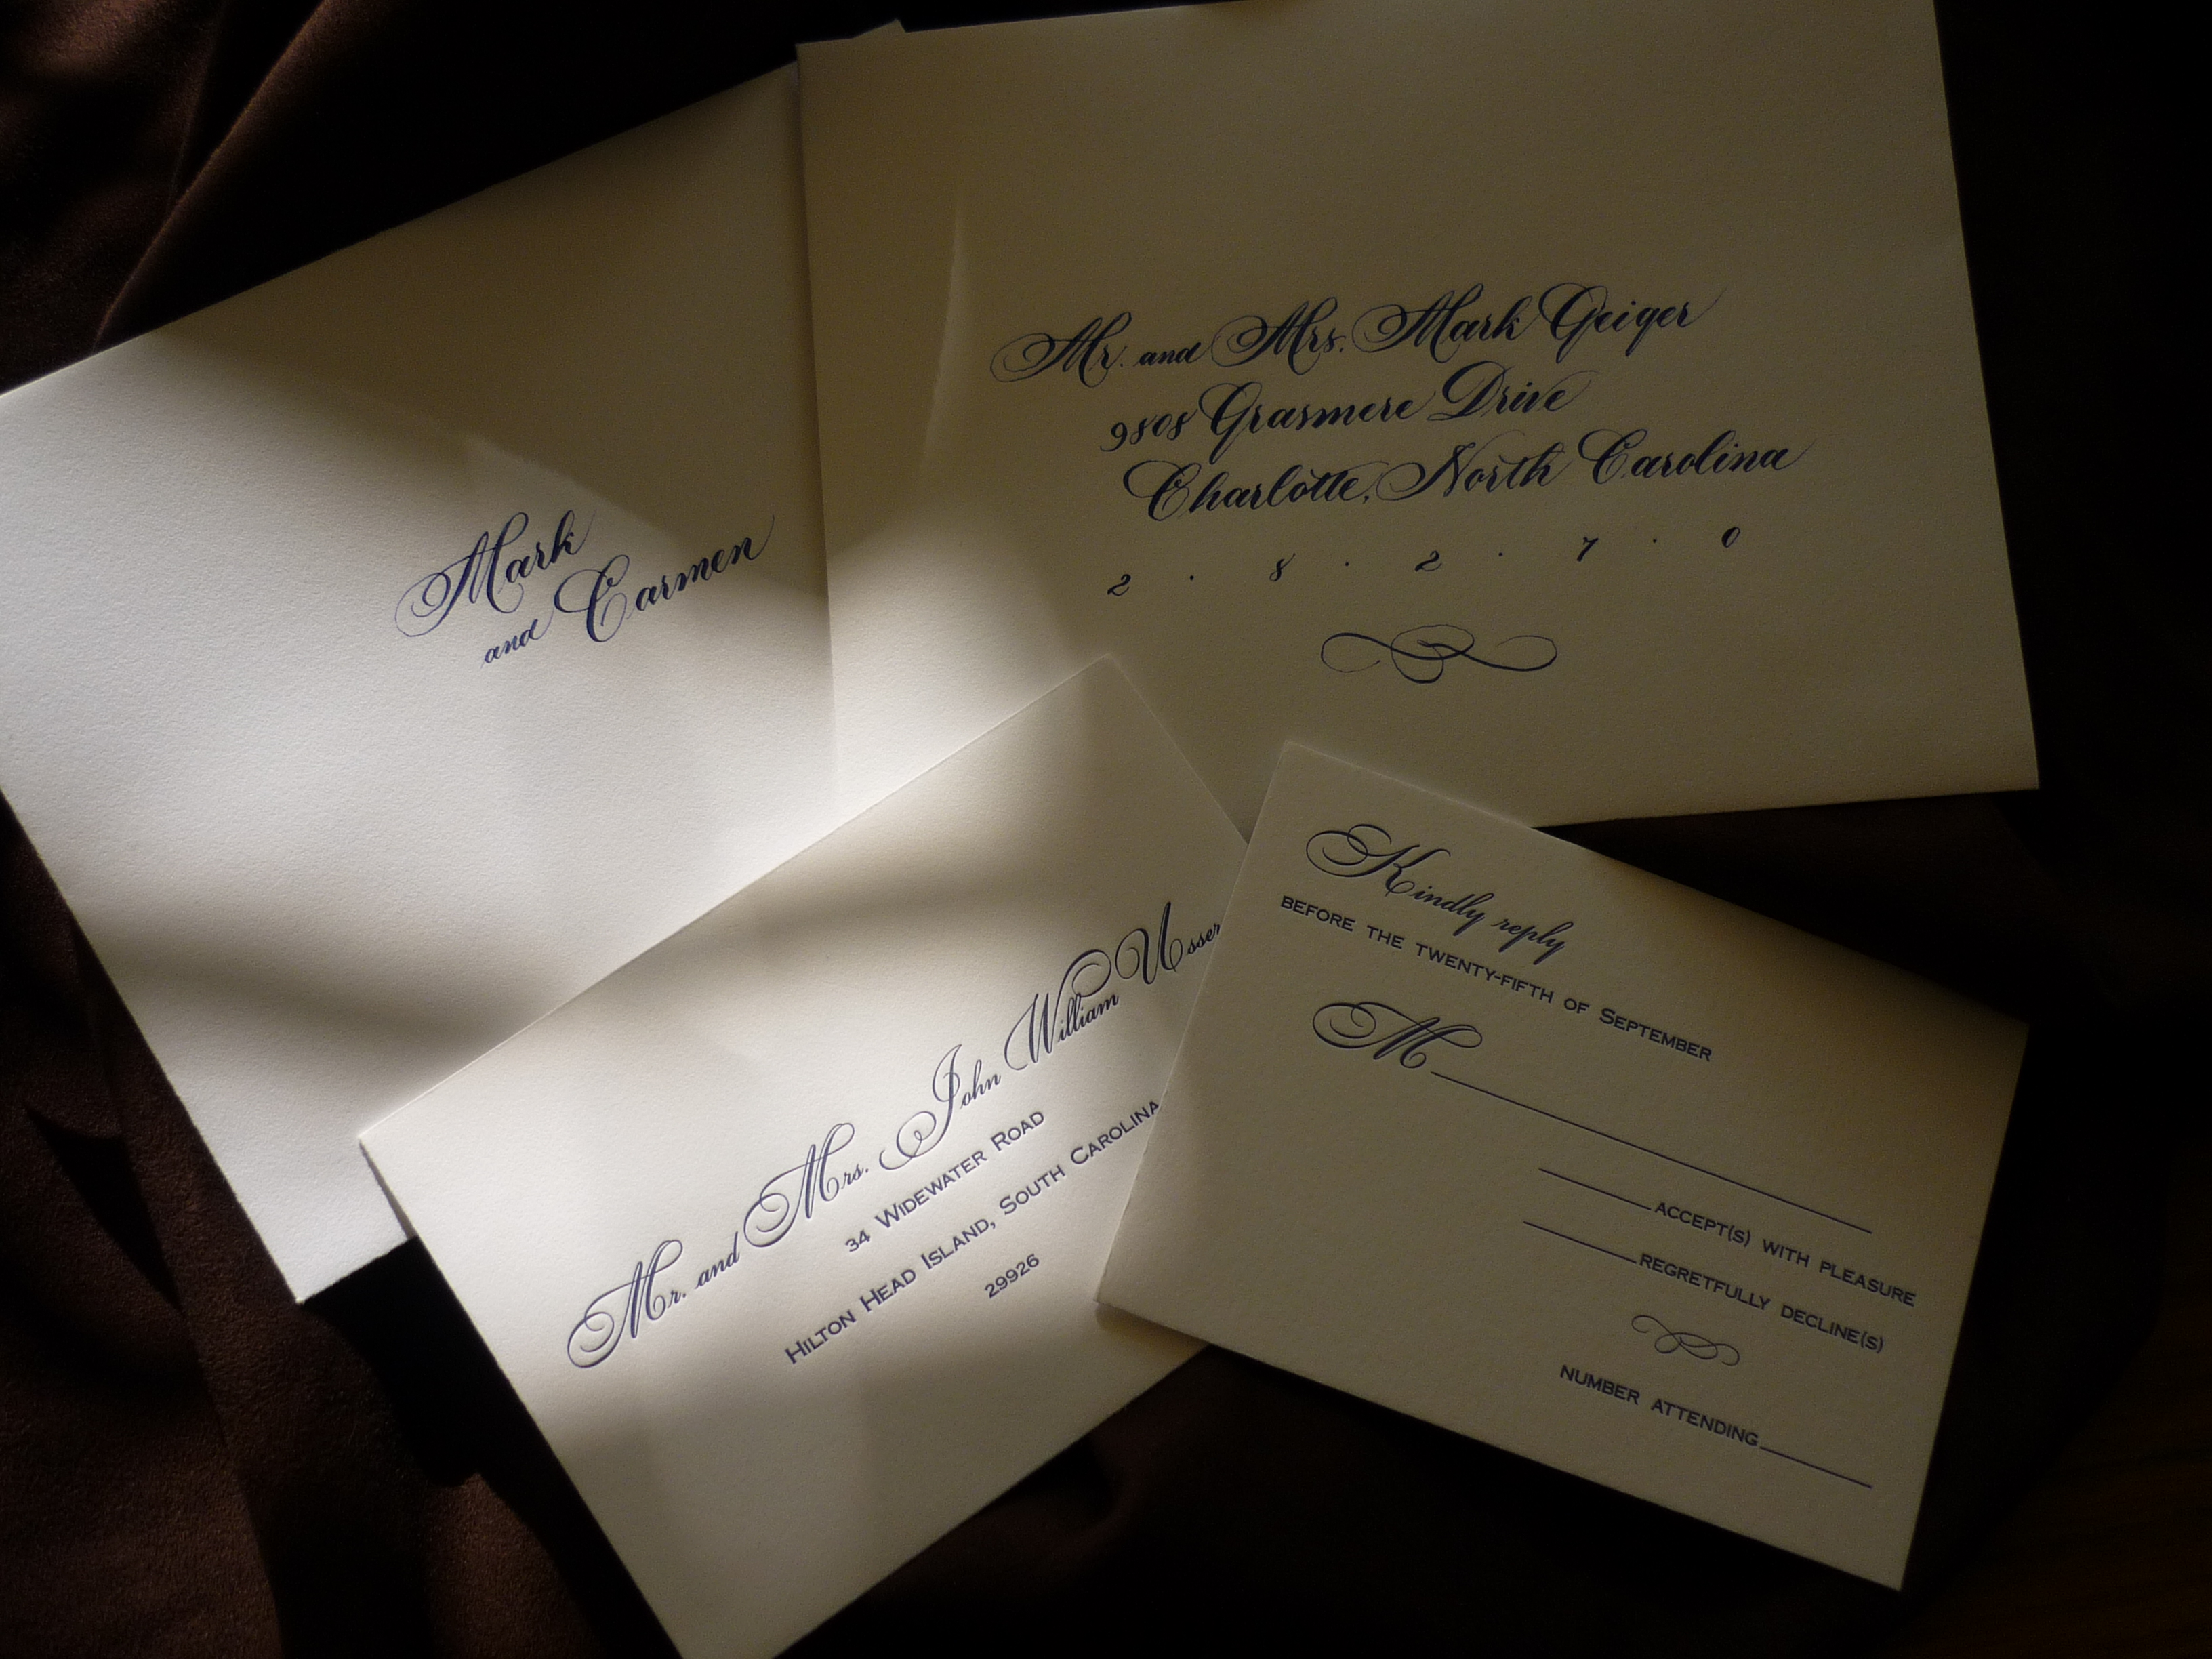 Mark
and Carmen
Mr. and Mrs. Mark Geiger
9808 Grasmere Drive
Charlotte, North Carolina
2 · 8 · 2 · 7 · 0
Mr. and Mrs. John William Usser
34 Widewater Road
Hilton Head Island, South Carolina
29926
Kindly reply
before the twenty-fifth of September
M
accept(s) with pleasure
regretfully decline(s)
number attending